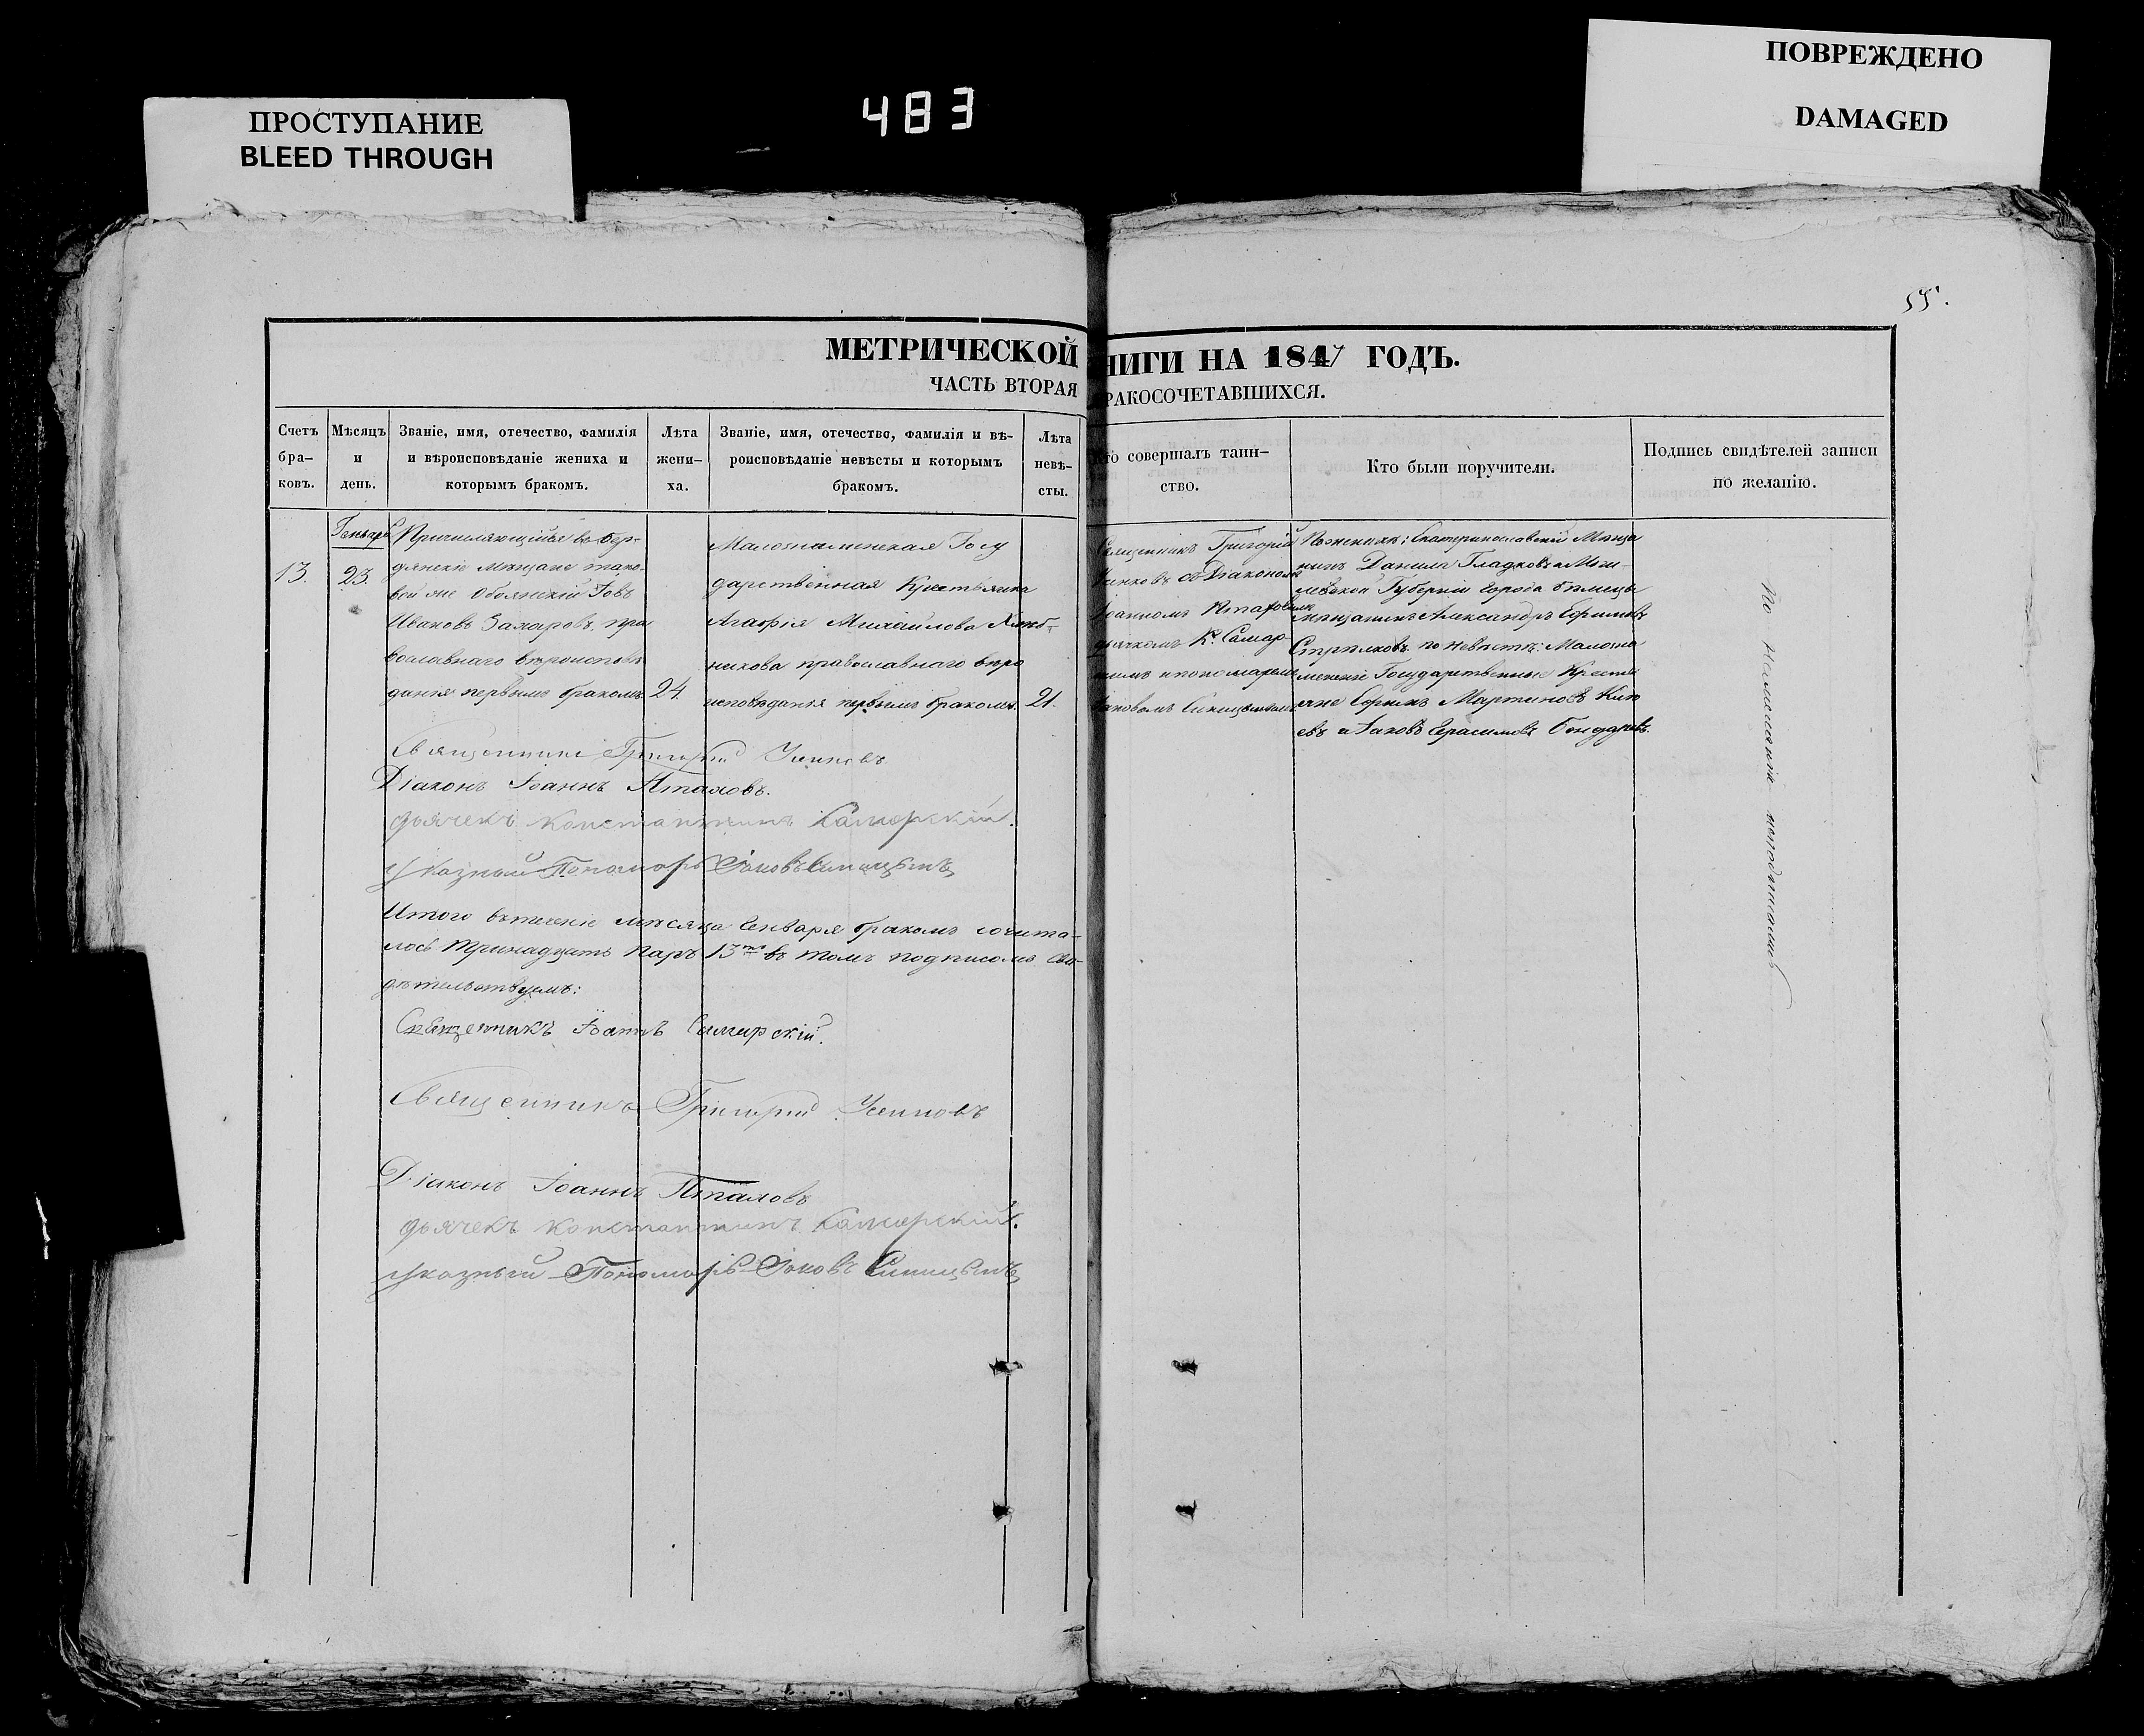 ПРОСТУПАНИЕ
BLEED THROUGH
483
ПОВРЕЖДЕНО
DAMAGED
55.
МЕТРИЧЕСКОЙ
НИГИ НА 1847 ГОДЪ.
ЧАСТЬ ВТОРАЯ
РАКОСОЧЕТАВШИХСЯ.
Счетъ
бра–
ковъ.
Мѣсяцъ
и
день.
Званіе, имя, отечество, фамилія
и вѣроисповѣданіе жениха и
которымъ бракомъ.
Лѣта
жени–
ха.
Званіе, имя, отечество, фамилія и вѣ–
роисповѣданіе невѣсты и которымъ
бракомъ.
Лѣта
невѣ–
сты.
то совершалъ таин–
ство.
Кто были поручители.
Подпись свидѣтелей записи
по желанію.
13.
Генваря
23.
Причисляющійся въ Бер–
дянскіе Мѣщане тако–
вой же Обоянскій Іовъ
Ивановъ Захаровъ, пра
вославнаго вѣроисповѣ
данія первымъ бракомъ.
24.
Малознаменская Госу
дарственная Крестьянка
Агафія Михайлова
никова православнаго вѣро
исповѣданія первымъ бракомъ.
21.
Священникъ Григорій
съ Діакономъ
Іоанномъ
дьячкомъ К. Самар–
скимъ и пономаремъ
Яковомъ Синицынымъ.
По женихѣ: Екатеринославскій Мѣща
нинъ Данилъ Гладковъ и Моги–
левской Губерніи города Бѣлицы
мѣщанинъ Александръ Ефимовъ
Стрѣлковъ, по невѣстѣ: Малозна
менскіе Государственные Кресть
яне Мартиновъ
евъ и Іаковъ Герасимовъ Бондаревъ.
По неимѣнію неподписались
Священникъ Григорій
Діаконъ Іоаннъ Пталовъ.
Дьячекъ Константинъ Самарскій.
Указный Пономарь Іаковъ Синицынъ
Итого въ теченіе мѣсяца Генваря бракомъ сочита–
лось тринадцать паръ 13ть въ томъ подписомъ сви–
дѣтельствуемъ:
Священникъ Іоаннъ Самарскій.
Священникъ Григорій
Діаконъ Іоаннъ Пталовъ
Дьячекъ Константинъ Самарскій.
Указный Пономарь Іаковъ Синицынъ